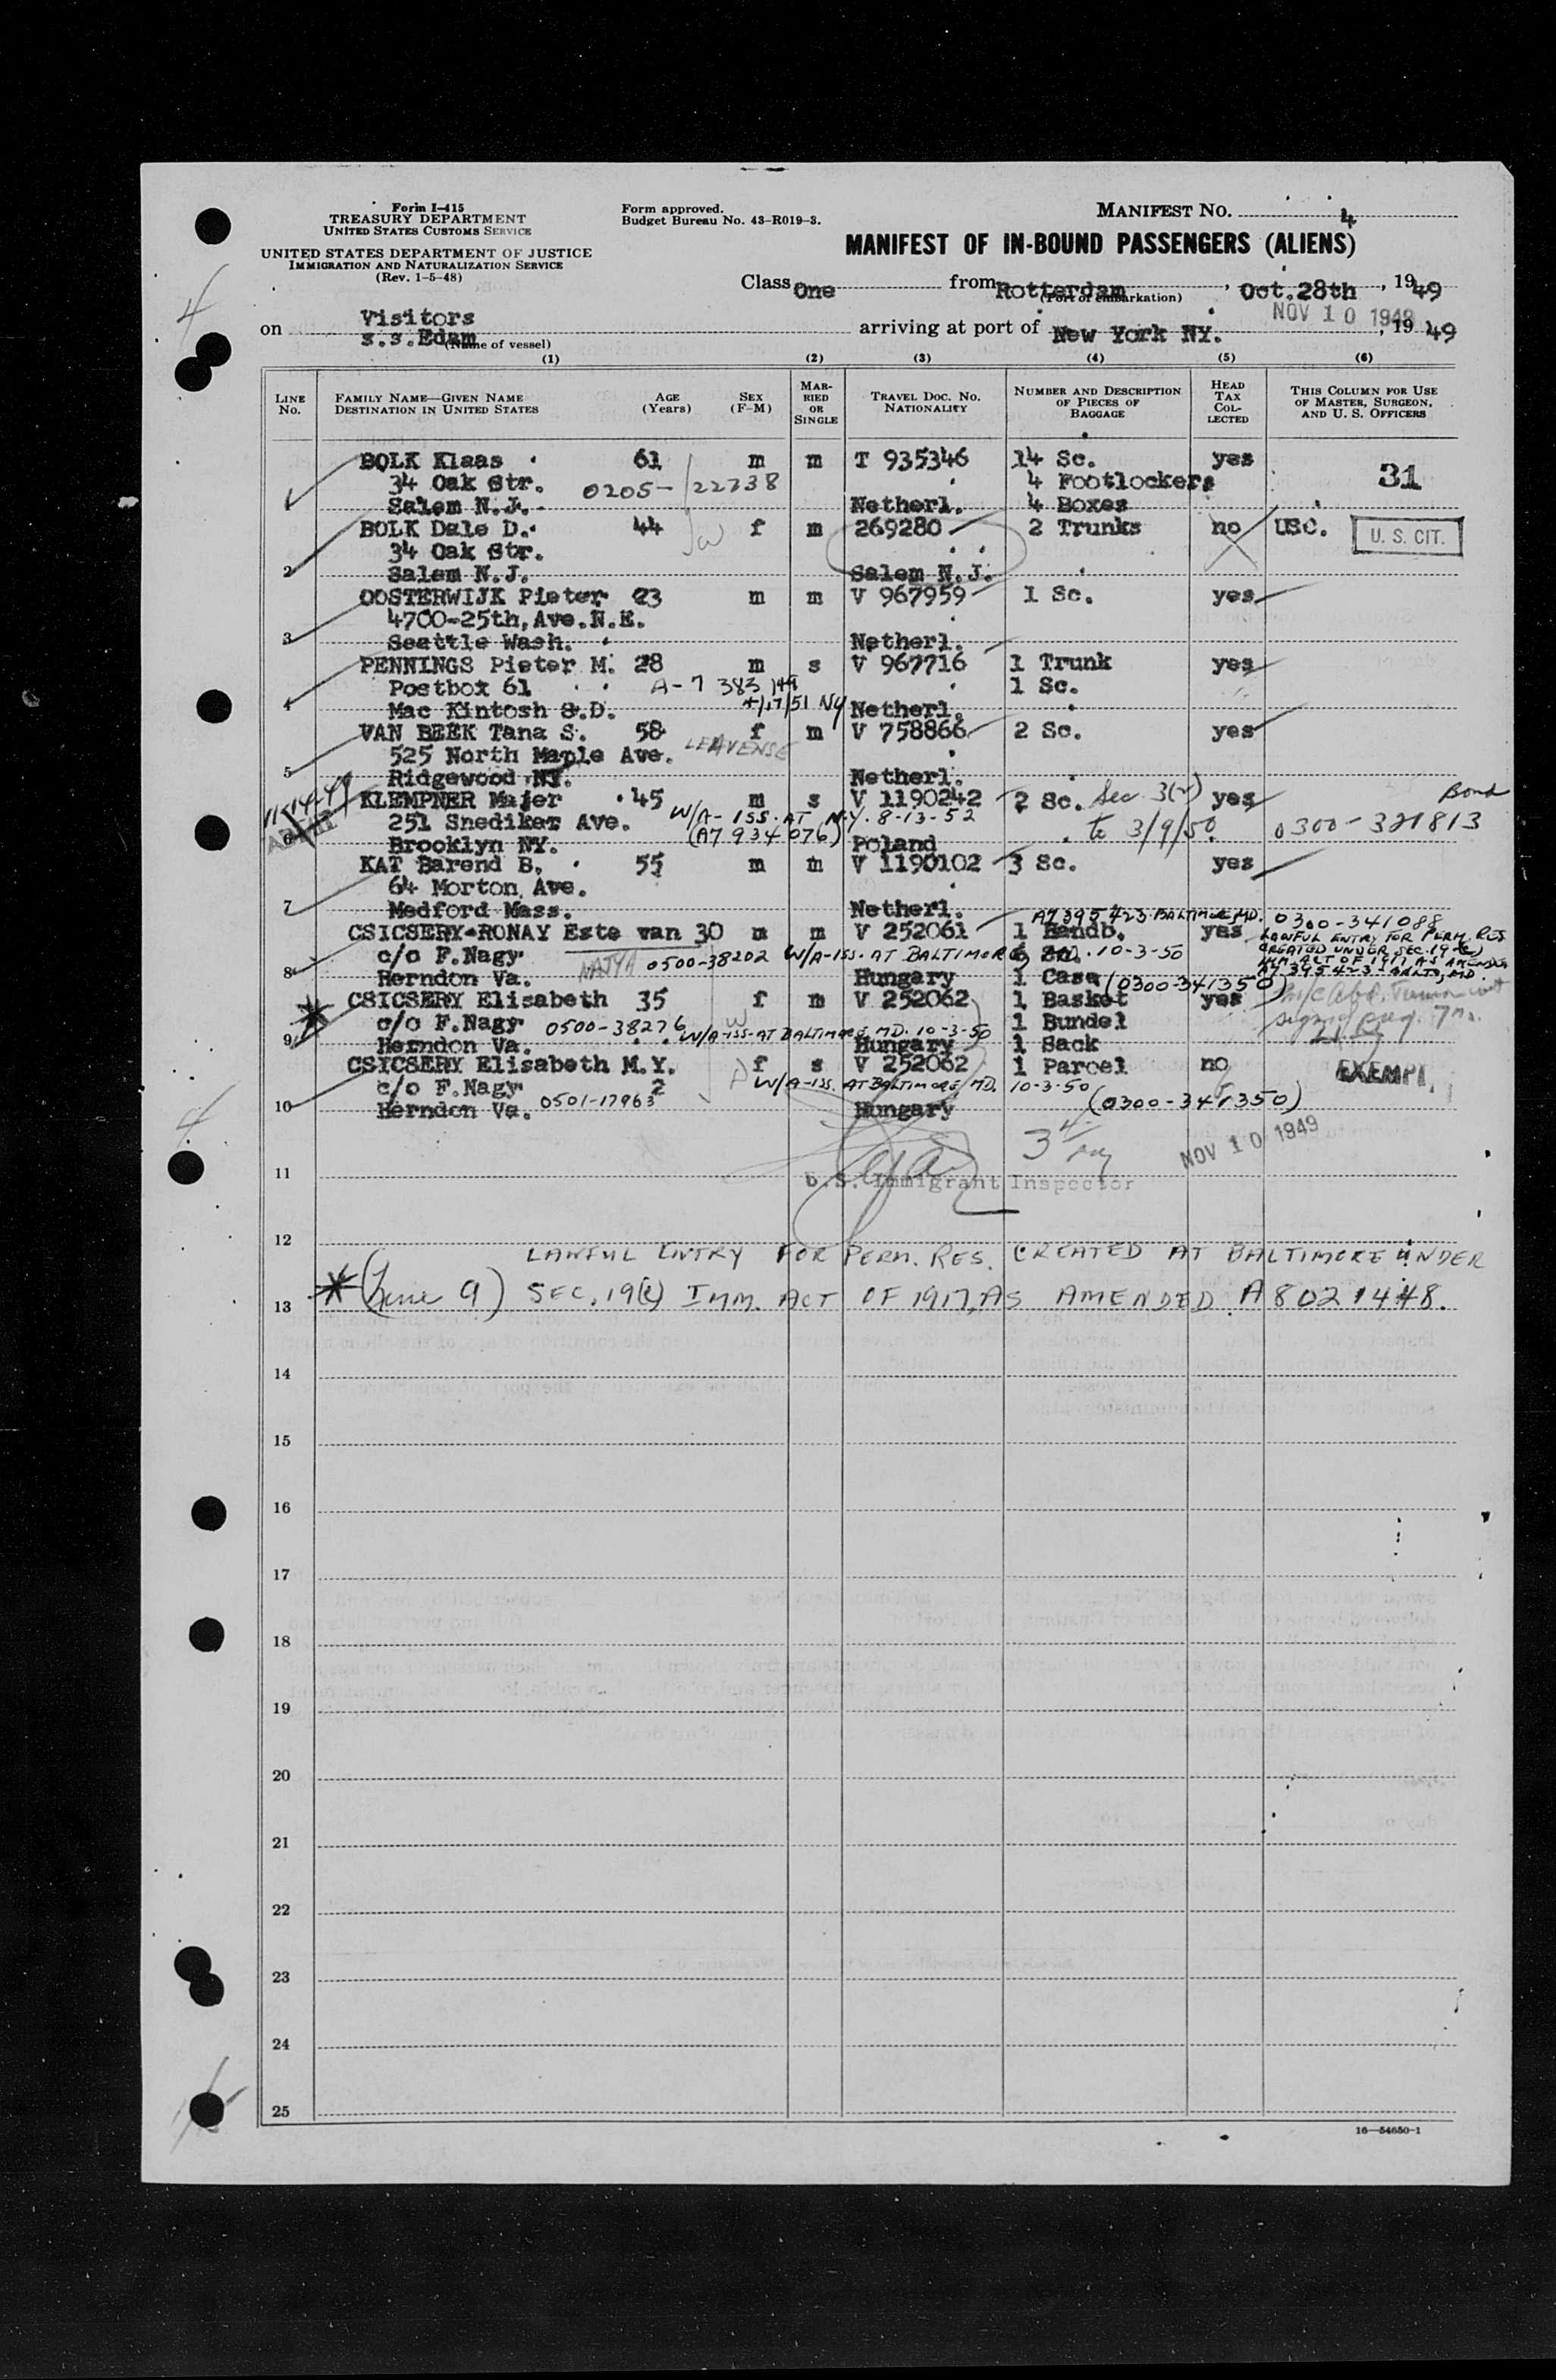 Form I-415
TREASURY DEPARTMENT
UNITED STATES CUSTOMS SERVICE
UNITED STATES DEPARTMENT OF JUSTICE
IMMIGRATION AND NATURALIZATION SERVICE
(Rev. 1-5-48)
Form approved.
Budget Bureau No. 43-R019-3.
MANIFEST NO. 4
MANIFEST OF IN-BOUND PASSENGERS (ALIENS)
Class One from Rotterdam, Oct.28th, 1949
(Port of embarkation)
NOV 10 1949
Visitors
on s.s.Edam arriving at port of New York NY., 1949
(Name of vessel)
(1) (2) (3) (4) (5) (6)
LINE NO. FAMILY NAME—GIVEN NAME DESTINATION IN UNITED STATES AGE (Years) SEX (F-M) MARRIED OR SINGLE TRAVEL DOC. NO. NATIONALITY NUMBER AND DESCRIPTION OF PIECES OF BAGGAGE HEAD TAX COLLECTED THIS COLUMN FOR USE OF MASTER, SURGEON, AND U. S. OFFICERS
BOLK Klaas 61 m m T 935346 14 Sc. yes 31
34 Oak Str. 0205-22738 4 Footlockers
Salem N.J. Netherl. 4 Boxes
BOLK Dale D. 44 f m 269280 2 Trunks no USC. U. S. CIT.
34 Oak Str.
2 Salem N.J. Salem N.J.
OOSTERWIJK Pieter 23 m m V 967959 1 Sc. yes
4700-25th, Ave.N.E.
3 Seattle Wash. Netherl.
PENNINGS Pieter M. 28 m s V 967716 1 Trunk yes
Postbox 61 A-7 383 144 1 Sc.
4 Mac Kintosh S.D. 4/17/51 NY Netherl.
VAN BEEK Tana S. 58 f m V 758866 2 Sc. yes
525 North Maple Ave. LEAVENSE
5 Ridgewood NY. Netherl.
11-14-49 KLEMPNER Majer 45 m s V 1190242 2 Sc. Sec 3(2) yes Bond
251 Snediker Ave. W/A- ISS. AT N.Y. 8-13-52 to 3/9/50 0300-321813
6 Brooklyn NY. (A7 934 076) Poland
KAT Barend B. 55 m m V 1190102 3 Sc. yes
64 Morton Ave.
7 Medford Mass. Netherl.
A7 395 423 BALTIMORE MD. 0300-341088
CSICSERY-RONAY Este van 30 m m V 252061 1 Handb. yes LAWFUL ENTRY FOR PERM. RES.
c/o F.Nagy 0500-38202 W/A-ISS. AT BALTIMORE MD. 10-3-50 CREATED UNDER SEC. 19(c)
IMM. ACT OF 1917 AS AMENDED
8 Herndon Va. Hungary 1 Case (0300-341350) A7 395423-BALTO, MD.
CSICSERY Elisabeth 35 f m V 252062 1 Basket yes
c/o F.Nagy 0500-38276 W/A-ISS-AT BALTIMORE MD. 10-3-50 1 Bundel
9 Herndon Va. Hungary 1 Sack
CSICSERY Elisabeth M.Y. f s V 252062 1 Parcel no EXEMPT
c/o F.Nagy 2 W/A-ISS. AT BALTIMORE, MD. 10-3-50
10 Herndon Va. 0501-17963 Hungary (0300-341350)
NOV 10 1949
11 U.S. Immigrant Inspector
12
LAWFUL ENTRY FOR PERM. RES. CREATED AT BALTIMORE UNDER
13 * (Line 9) SEC. 19(c) IMM. ACT OF 1917, AS AMENDED. A8021448.
14
15
16
17
18
19
20
21
22
23
24
25
16—54650-1